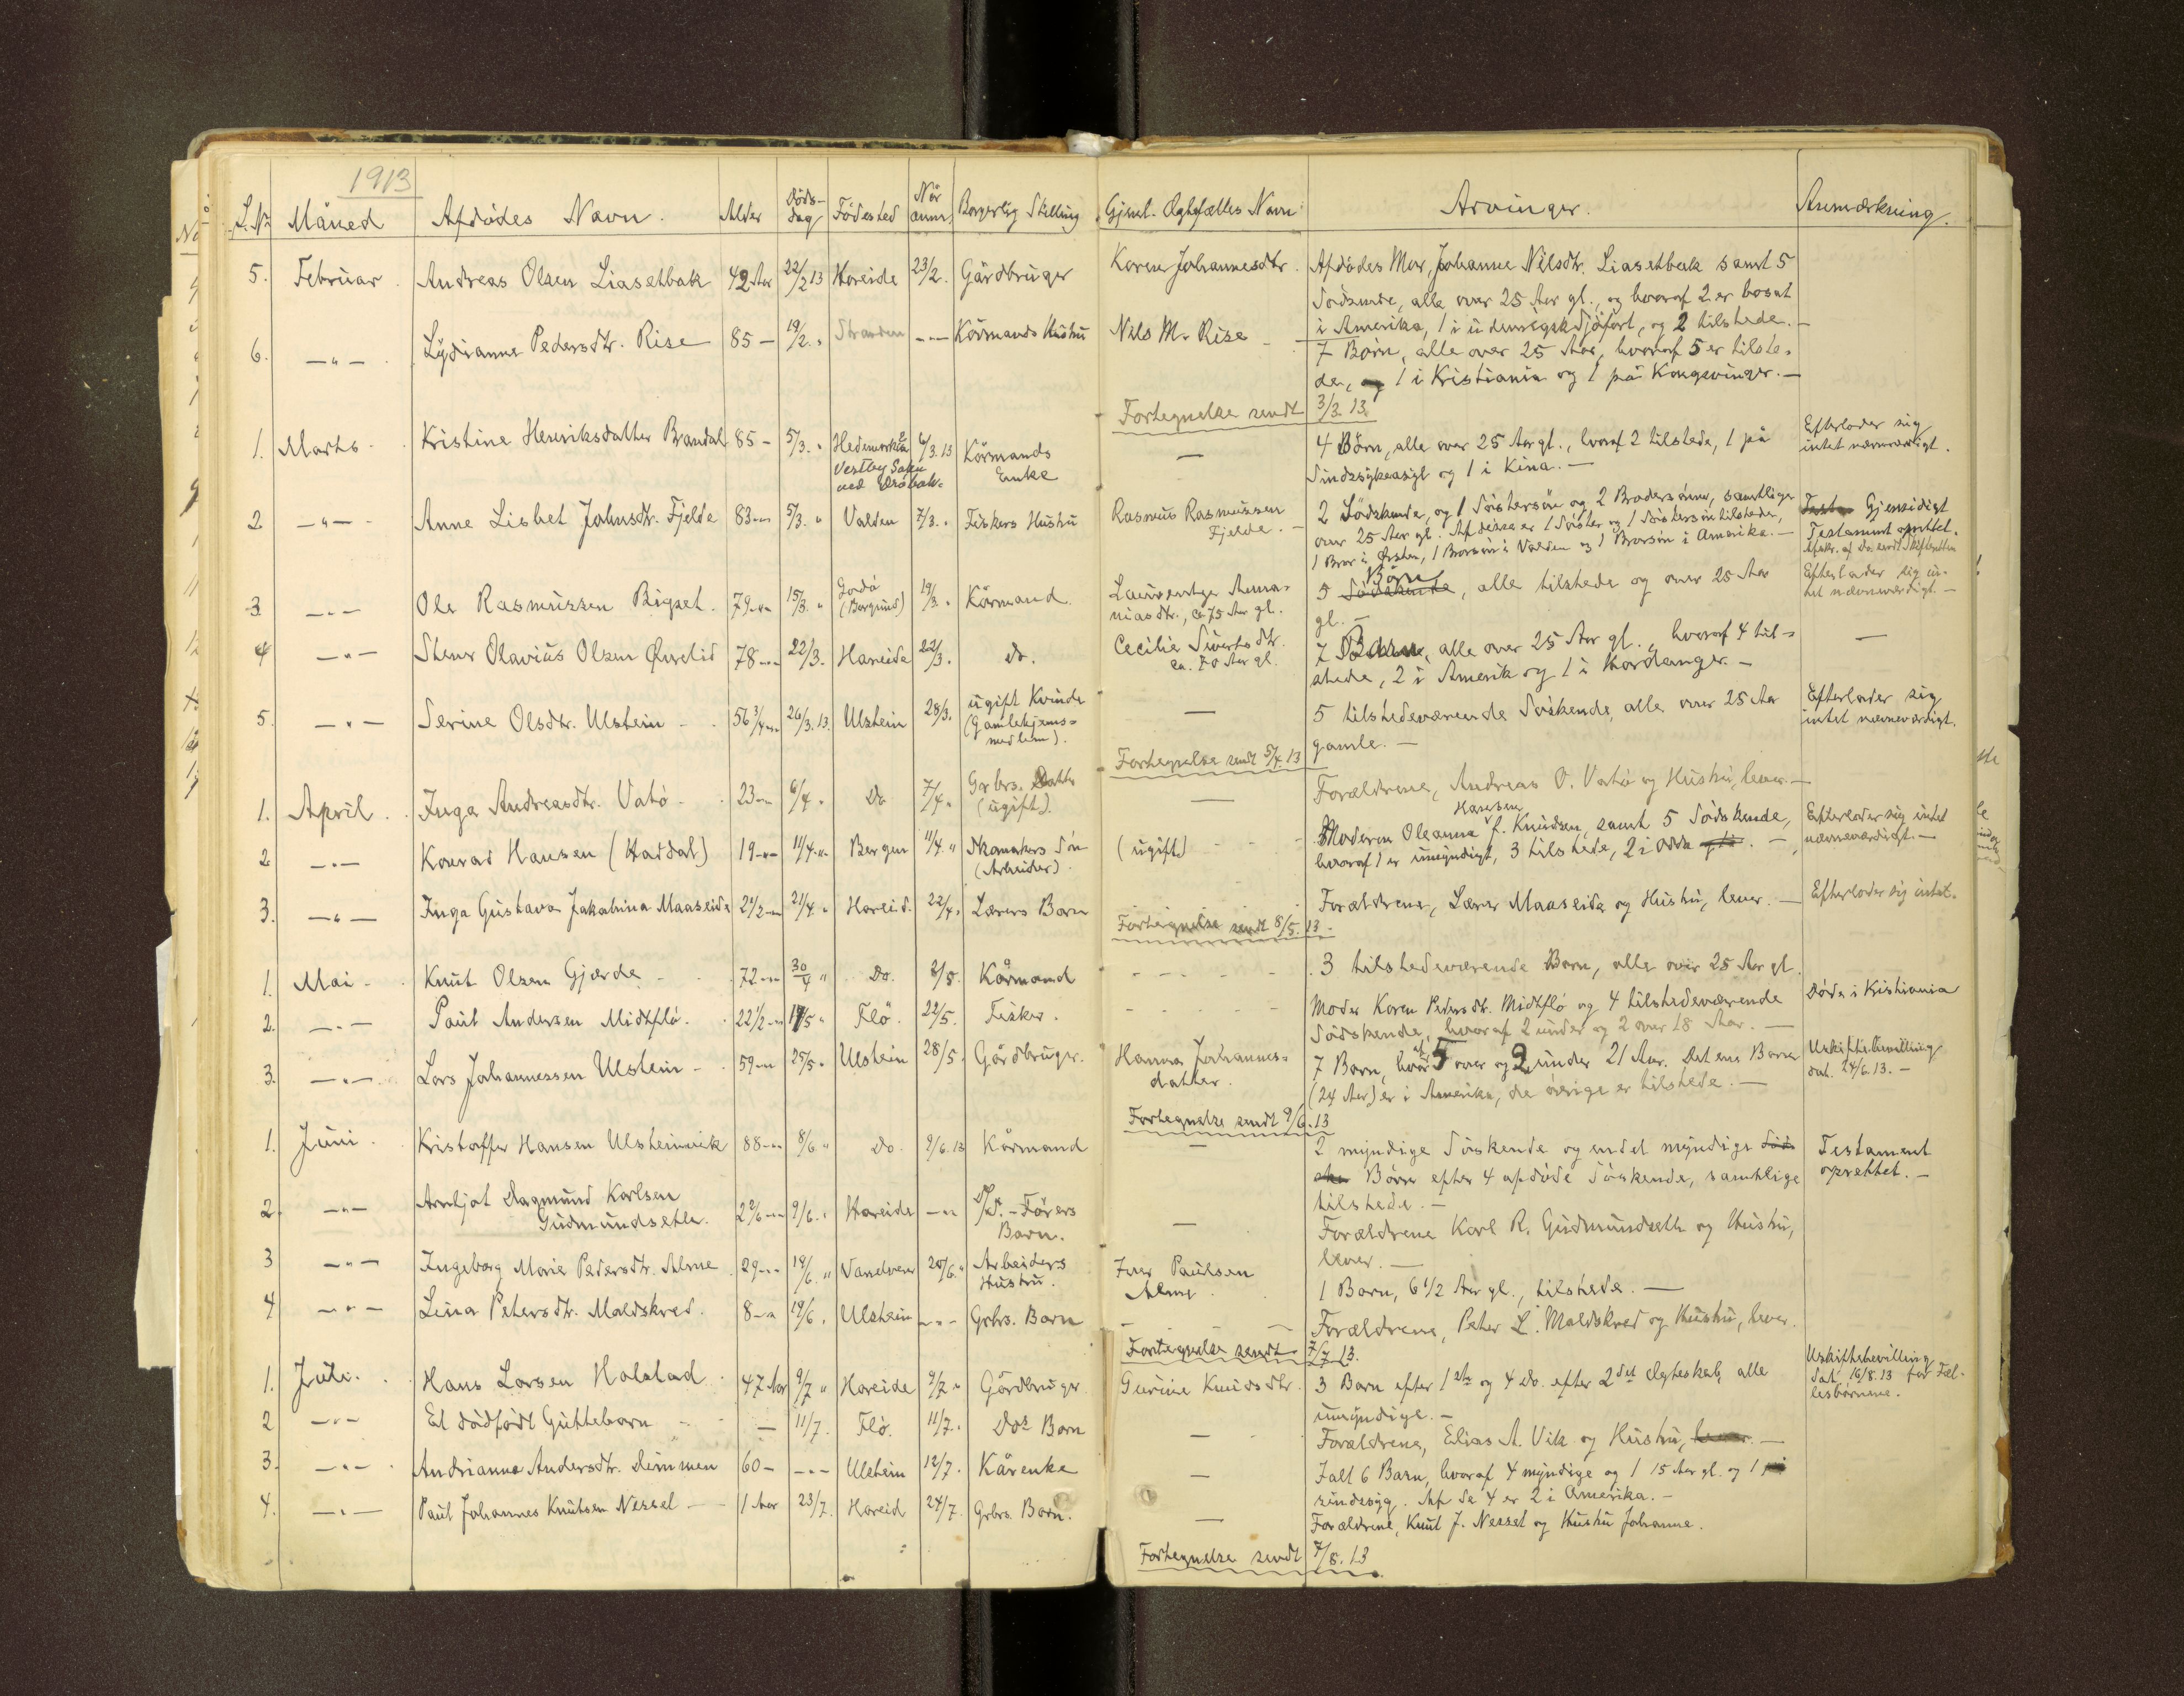 1913
L.Nr. Måned Afdödes Navn. Alder Döds-dag Födested Når anm. Borgerlig Stilling Gjenl. Ægtefælles Navn Arvinger. Anmærkning.
5. Februar. Andreas Olsen Liasetbak 42 Aar 22/2 13 Hareide 23/2. Gårdbruger Karen Johannesdtr. Afdödes Mor, Johanne Nilsdtr. Liasetbak samt 5
Södskende, alle over 25 Aar gl., og hvoraf 2 er bosat
i Amerika, 1 i udenrigsk Sjöfart, og 2 tilstede. —
6. —"— Lydianna Pedersdtr. Rise 85 — 19/2. " Stranden —"— Kårmands Hustru Nils M. Rise — 7 Börn, alle over 25 Aar, hvoraf 5 er tilste-
de, og 1 i Kristiania og 1 på Kongsvinger. —
Fortegnelse sendt 3/3. 13.
1. Marts. Kristine Henriksdatter Brandal 85 — 5/3. " Hedemarken 6/3. 13 Kårmands Enke — 4 Börn, alle over 25 Aar gl., hvoraf 2 tilstede, 1 på Efterlader sig
Vestby Sogn
ved Dröbak.
Sindssykeasyl og 1 i Kina. — intet nævneværdigt.
2. —"— Anne Lisbet Johnsdtr. Fjelde 83 —"— 5/3. " Valden 7/3. " Fiskers Hustru Rasmus Rasmussen Fjelde. — 2 Södskende, og 1 Söstersön og 2 Brodersönner, samtlige Gjensidigt
over 25 Aar gl. Af disse er 1 Söster og 1 Söstersön tilstede, Testament oprettet.
1 Bror i Örsten, 1 Brorsön i Valden og 1 Brorsön i Amerika. — Afskr. af Do. sendt Skifteretten
3. —"— Ole Rasmussen Rigset. 79 —"— 15/3. " Godö (Borgund) 19/3. " Kårmand. Laurentse Anna-
niasdtr., ca 75 Aar gl. 5 Södskende Börn, alle tilstede og over 25 Aar Efterlader sig in-
gl. — tet nævneværdigt. —
4 —"— Stener Olavius Olsen Överlid 78 —"— 22/3. Hareide 22/3. Do. Cecilie Sivertsdtr. 7 Börn, alle over 25 Aar gl., hvoraf 4 til- —
ca. 70 Aar gl. stede, 2 i Amerik og 1 i Hardanger. —
5. —"— Serine Olsdtr. Ulstein — 56 3/4 —"— 26/3. 13. Ulstein 28/3. ugift Kvinde — 5 tilstedeværende Söskende, alle over 25 Aar Efterlader sig
(Gamlehjems-
medlem). gamle. — intet nævneværdigt.
Fortegnelse sendt 5/4. 13
1. April. Inga Andreasdtr. Vatö. 23 —"— 6/4 " Do 7/4 " Grbrs. Datter (ugift). — Forældrene, Andreas O. Vatö og Hustru, lever. —
2 —"— Konrad Hansen (Haddal) 19 —"— 11/4 —"— Bergen 11/4. " Skomakers Sön (Arbeider) (ugift) — Moderen Oleanna Hansen f. Knudsen, samt 5 Södskende, Efterlader sig intet
hvoraf 1 er umyndigt, 3 tilstede, 2 i . — nævneværdigt. —
3. —"— Inga Gustava Jakobina Maaseide 2 1/2 —"— 21/4. " Hareid. 22/4. Lærers Barn Forældrene, Lærer Maaseide og Hustru, lever. — Efterlader sig intet.
Fortegnelse sendt 8/5. 13.
1. Mai. Knut Olsen Gjerde 72 —"— 30/4 " Do. 2/5. Kårmand — 3 tilstedeværende Barn, alle over 25 Aar gl.
2. —"— Paul Andersen Midtflö. 22 1/2 —"— 19/5 " Flö. 22/5. Fisker. — Moder Karen Pedersdtr. Midtflö og 4 tilstedeværende Döde i Kristiania
Södskende, hvoraf 2 under og 2 over 18 Aar. —
3. —"— Lars Johannessen Ulstein — 59 —"— 25/5. Ulstein 28/5. Gårdbruger. Hanna Johannes-
datter. 7 Barn, hvoraf 5 over og 2 under 21 Aar. Det ene Barn Uskiftebevilling
(24 Aar) er i Amerika, de övrige er tilstede. — dat. 24/6. 13. —
Fortegnelse sendt 9/6. 13
1. Juni. Kristoffer Hansen Ulsteinvik 88 —"— 8/6 " Do. 9/6. 13 Kårmand — 2 myndige Söskende og endel myndige Testament
Börn efter 4 afdöde Söskende, samtlige oprettet. —
tilstede. —
2. —"— Arnljot Dagmund Karlsen
Gudmundsetter. 2 2/6 —"— 9/6. Hareide —"— D/S. - Förers Barn. — Forældrene Karl R. Gudmundseth og Hustru,
lever. —
3 —"— Ingeborg Marie Pedersdtr. Alme 29 —"— 19/6. " Vanelven 20/6. " Arbeiders Hustru. Iver Paulsen Alme. 1 Barn, 6 1/2 Aar gl., tilstede. —
4 —"— Lina Petersdtr. Maldskred. 8 —"— 19/6. Ulstein —"— Grbrs. Barn — Forældrene, Peter L. Maldskred og Hustru, lever.
Fortegnelse sendt 7/7 13.
1. Juli. Hans Larsen Halstad 47 Aar 9/7 " Hareide 9/7. " Gårdbruger Gurine Knudsdtr. 3 Barn efter 1ste og 4 do. efter 2det Ægteskab, alle Uskiftebevilling
umyndige. — dat. 16/8. 13 for Fæl-
lesbörnene.
2 —"— Et dödfödt Guttebarn — 11/7. Flö. 11/7. Dos Barn — Forældrene, Elias A. Vik og Hustru, lever. —
3. —"— Andrianna Andersdtr. Dimmen 60 — —"— Ulstein 12/7. Kårenke — Ialt 6 Barn, hvoraf 4 myndige og 1 15 Aar gl. og 1
sindssyg. Af de 4 er 2 i Amerika. —
4. —"— Paul Johannes Knutsen Nesset — 1 Aar 23/7. Hareid 24/7. Grbrs. Barn. — Forældrene, Knut J. Nesset og Hustru Johanne.
Fortegnelse sendt 7/8. 13